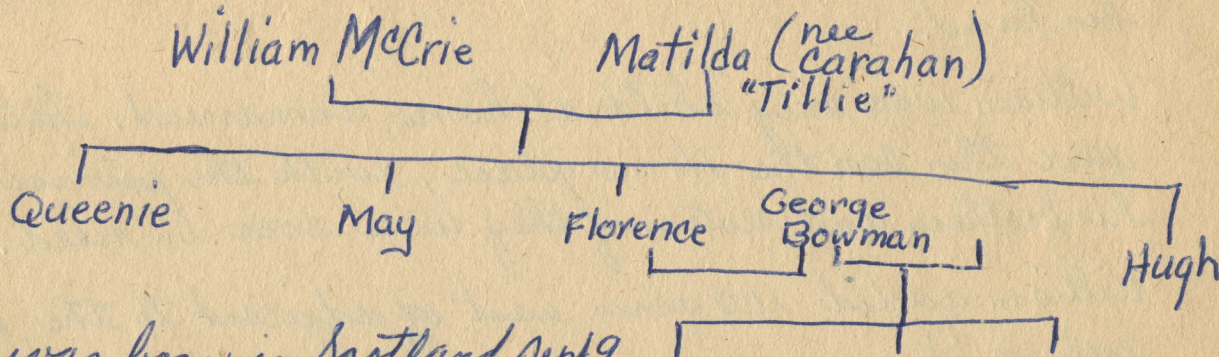 William McCrie
Matilda (nee Carahan)
"Tillie"
Queenie
May
Florence
George Bowman
Hugh
was born in Scotland Sept 9